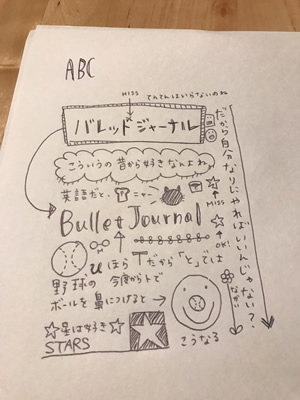 ABC
MISS
てんてんはいらないのね
バレッドジャーナル
こういうの昔から好きなんよね
英語だと、
ニャー
MISS
Bullet Journal
OK!
ほらTだから「と」では
野球の
今度からトで
ボールを鼻につけると→
こうなる
☆星は好き☆
STARS
だから自分なりにやればいいんじゃない?
ながい